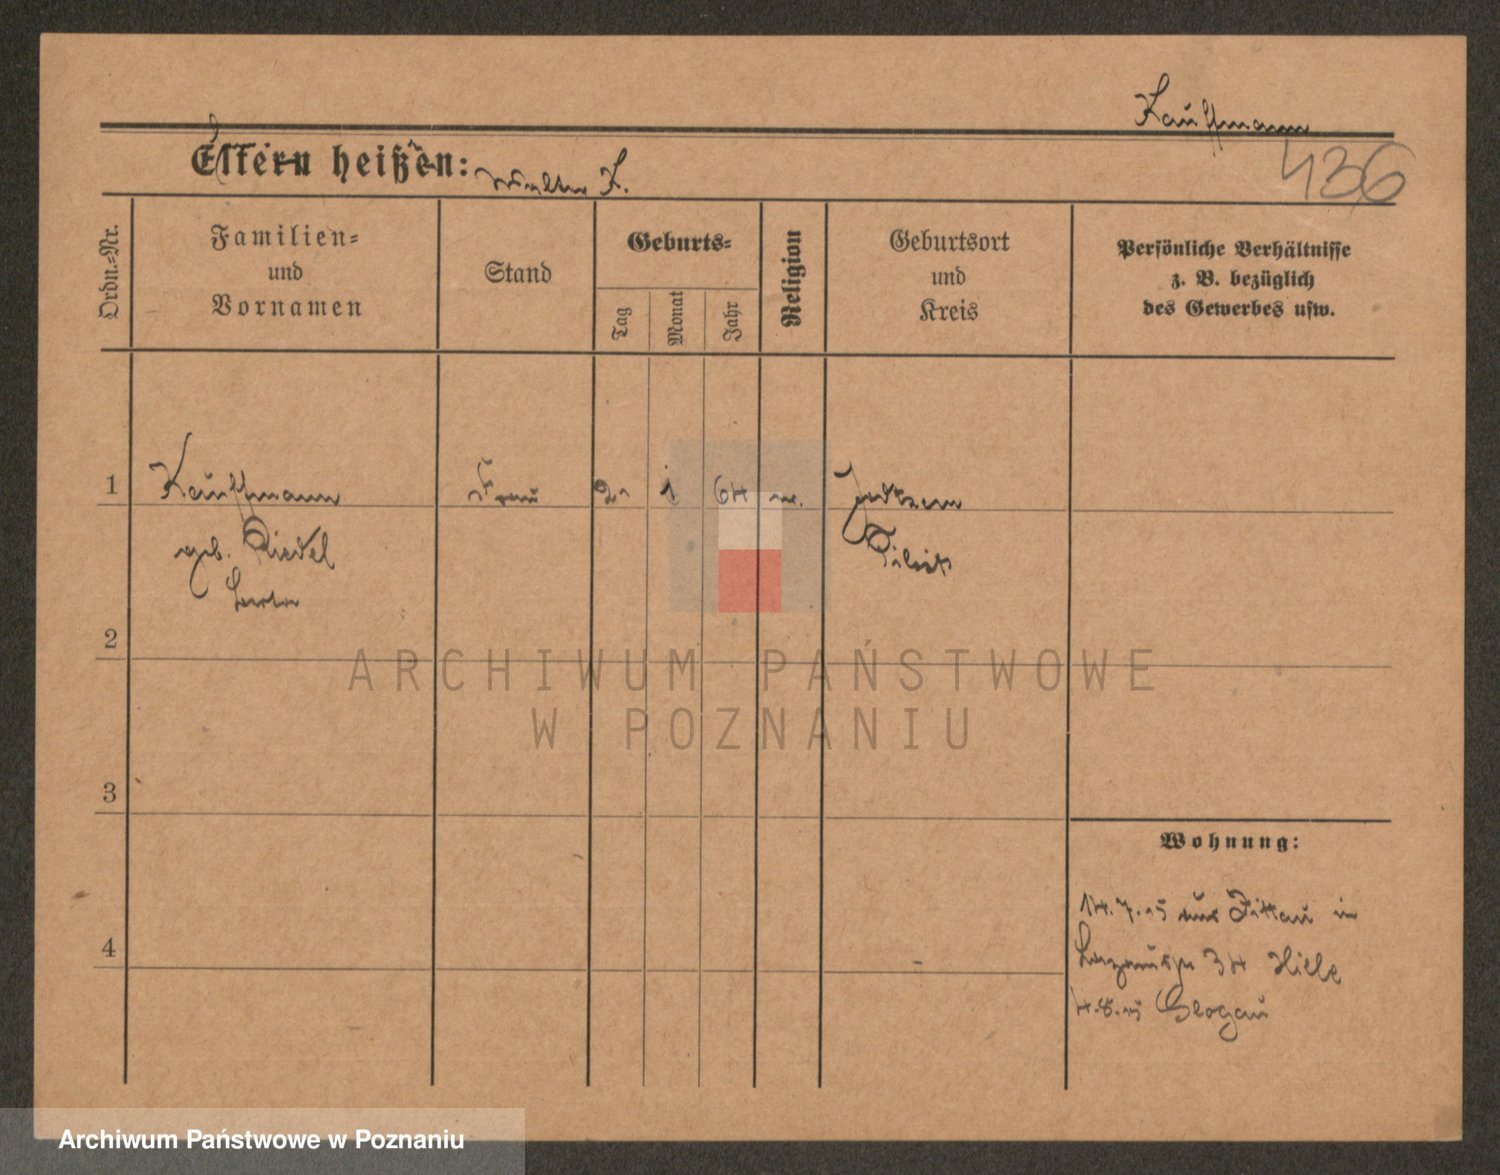 Kauffmann
Eltern heißen: Walter K.
436
Ordn.-Nr.
Familien-
und
Vornamen
Stand
Geburts-
Tag
Monat
Jahr
Religion
Geburtsort
und
Kreis
Persönliche Verhältnisse
z. B. bezüglich
des Gewerbes usw.
1
Kauffmann
Frau
2.
1
64
Tilsit
geb. Riedel
2
ARCHIWUM PAŃSTWOWE
W POZNANIU
3
Wohnung:
14.7.15 aus Zittau in
34 Hille
4
4.8.15 Glogau
Archiwum Państwowe w Poznaniu